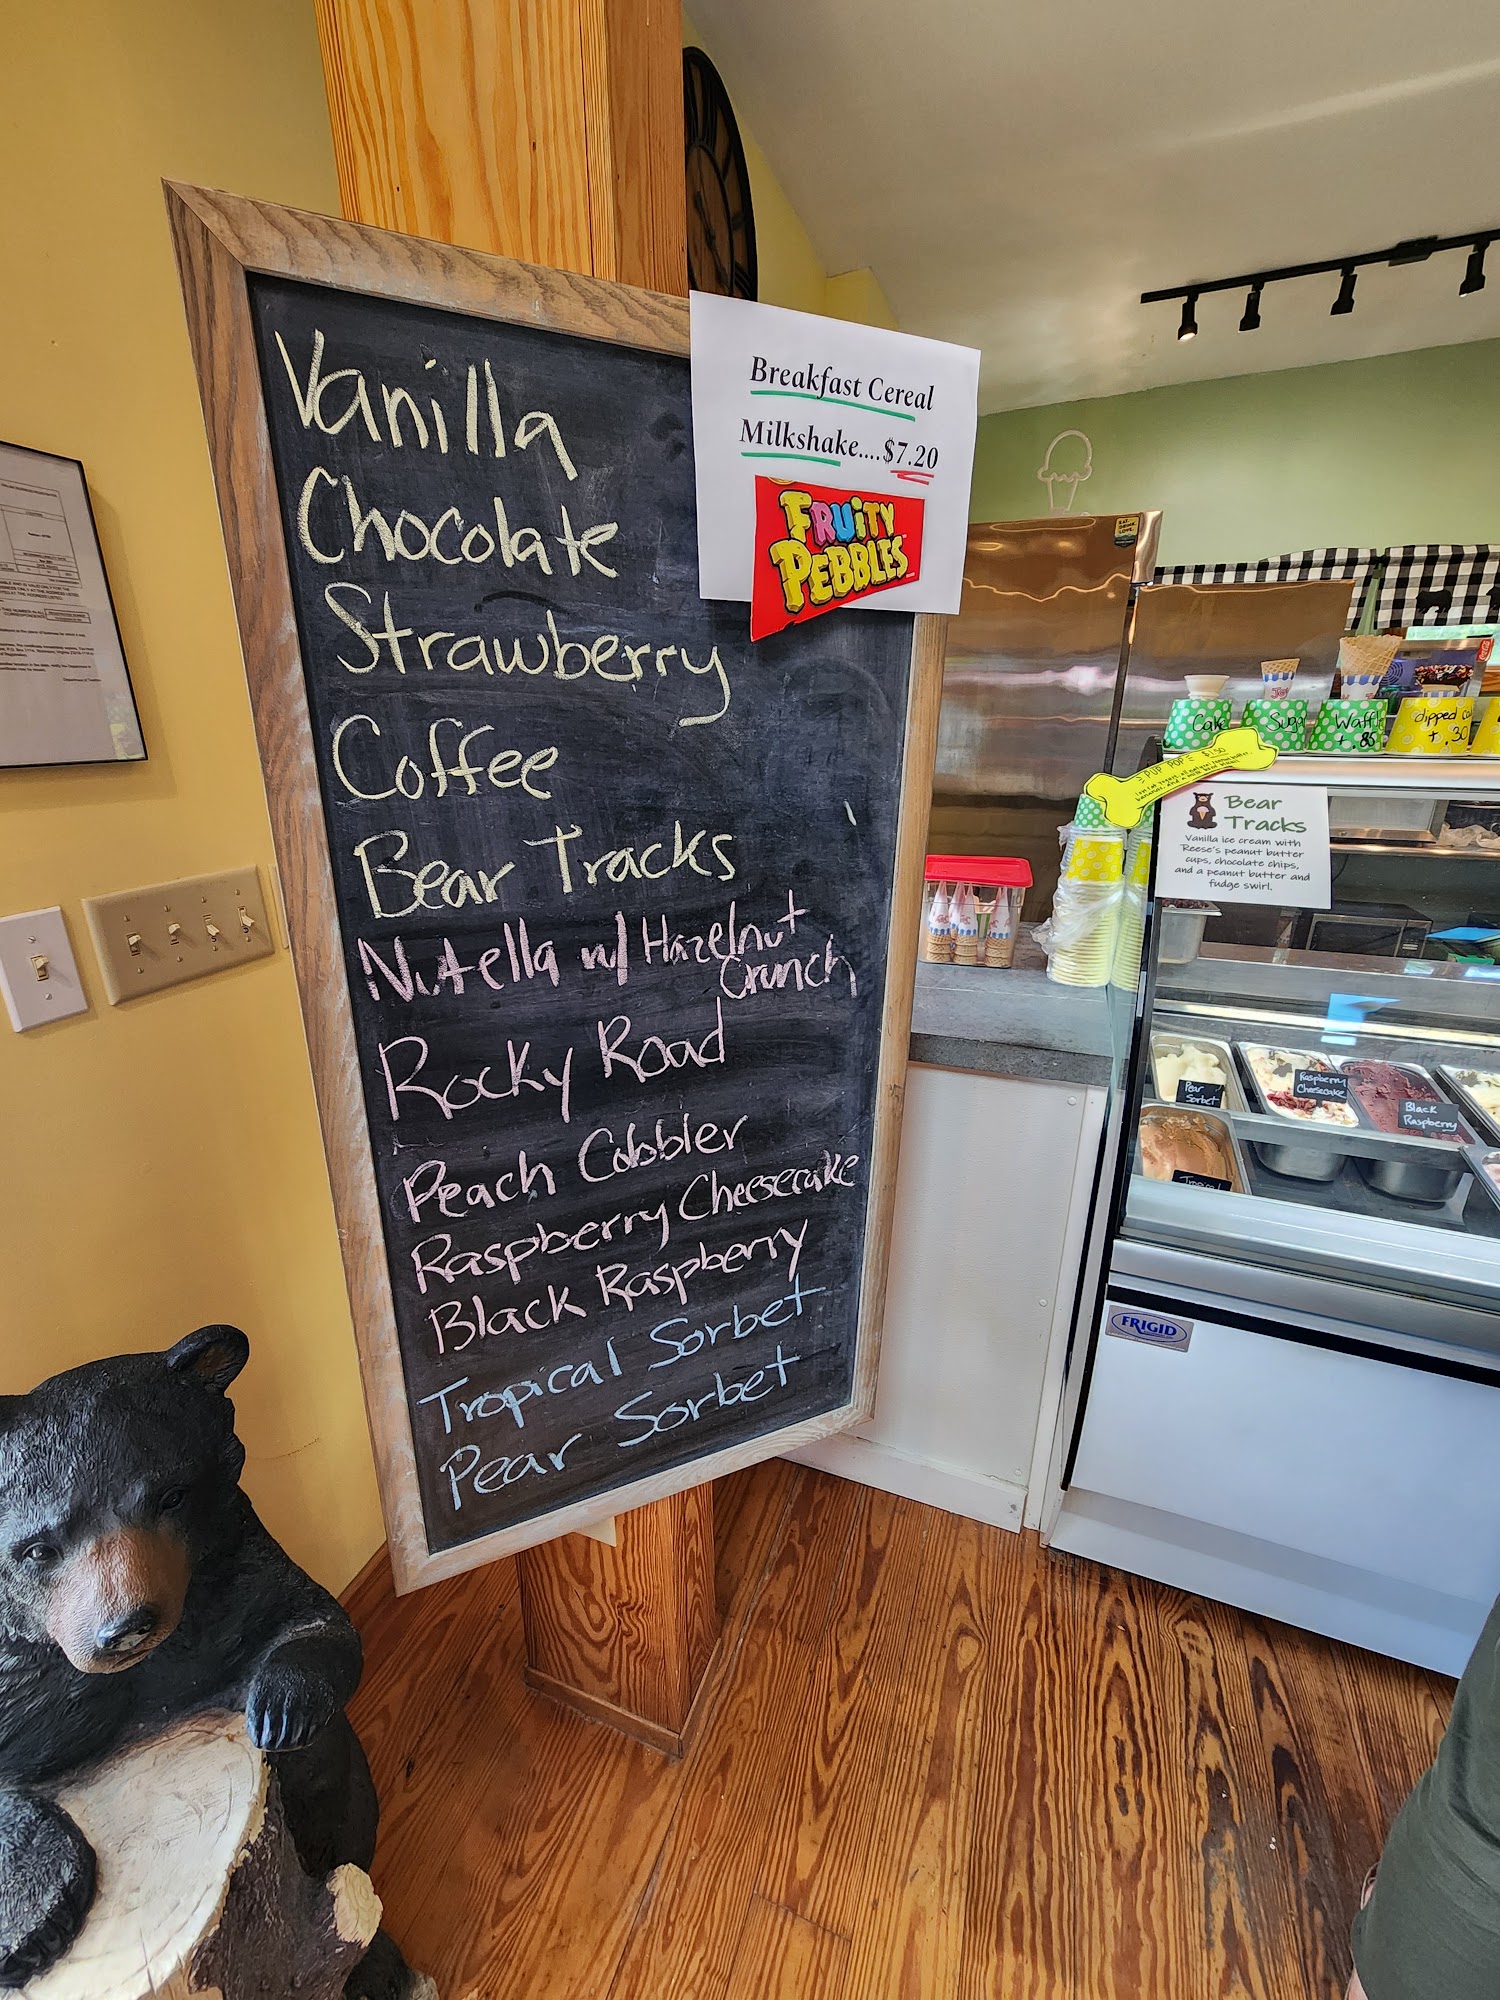 Vanilla
Chocolate
Strawberry
Coffee
Bear Tracks
Nutella w/ Hazelnut
Crunch
Rocky Road
Peach Cobbler
Raspberry Cheesecake
Black Raspberry
Tropical Sorbet
Pear Sorbet
Breakfast Cereal
Milkshake....$7.20
FRUITY
PEBBLES
Cake
Waffle
+.85
dipped
+.30
PUP POP
$1.50
Bear
Tracks
Vanilla ice cream with
Reese's peanut butter
cups, chocolate chips,
and a peanut butter and
fudge swirl.
Pear
Sorbet
Raspberry
Cheesecake
Black
Raspberry
Tropical
FRIGID